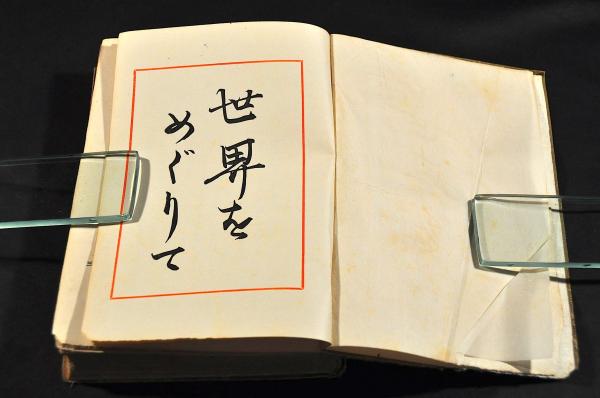 世界を
めぐりて